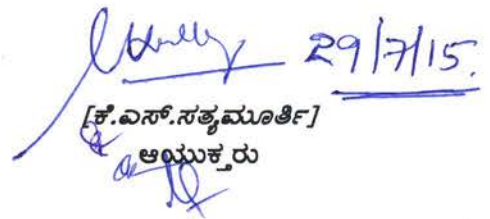 29/7/15.
[ಕೆ.ಎಸ್.ಸತ್ಯಮೂರ್ತಿ]
ಆಯುಕ್ತರು